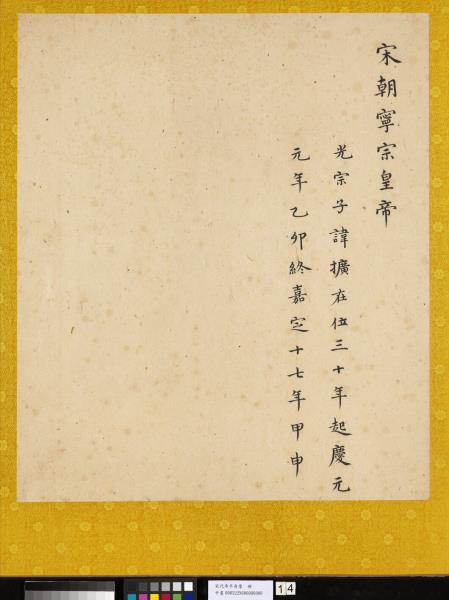 宋朝寧宗皇帝
光宗子諱擴在位三十年起慶元
元年乙卯終嘉定十七年甲申
宋代帝半身像 冊
14